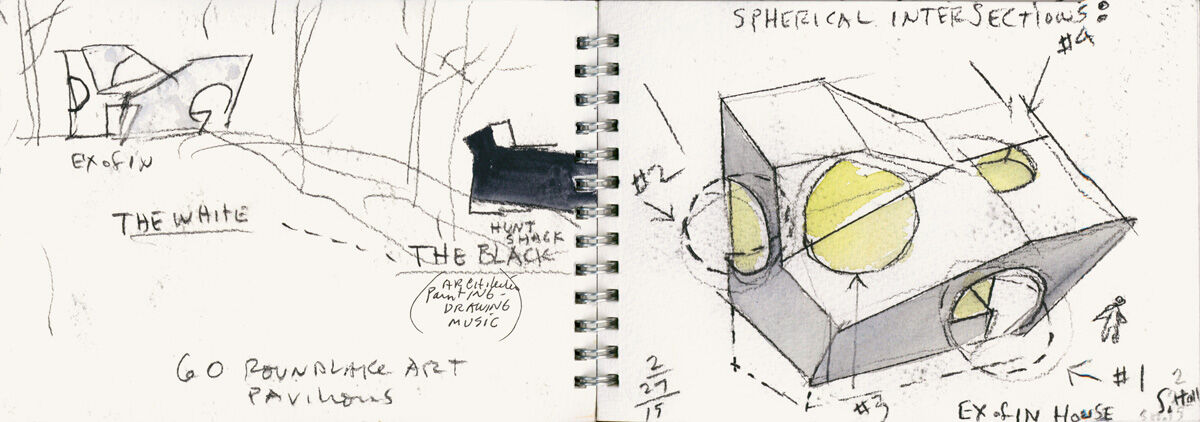 EX of IN
THE WHITE
HUNT
SHACK
THE BLACK
PAINTING -
DRAWING
MUSIC
60 ROUNDLAKE ART
PAVILIONS
SPHERICAL INTERSECTIONS:
#4
#2
2
27
15
#3
#1
EX of IN HOUSE
S. Holl